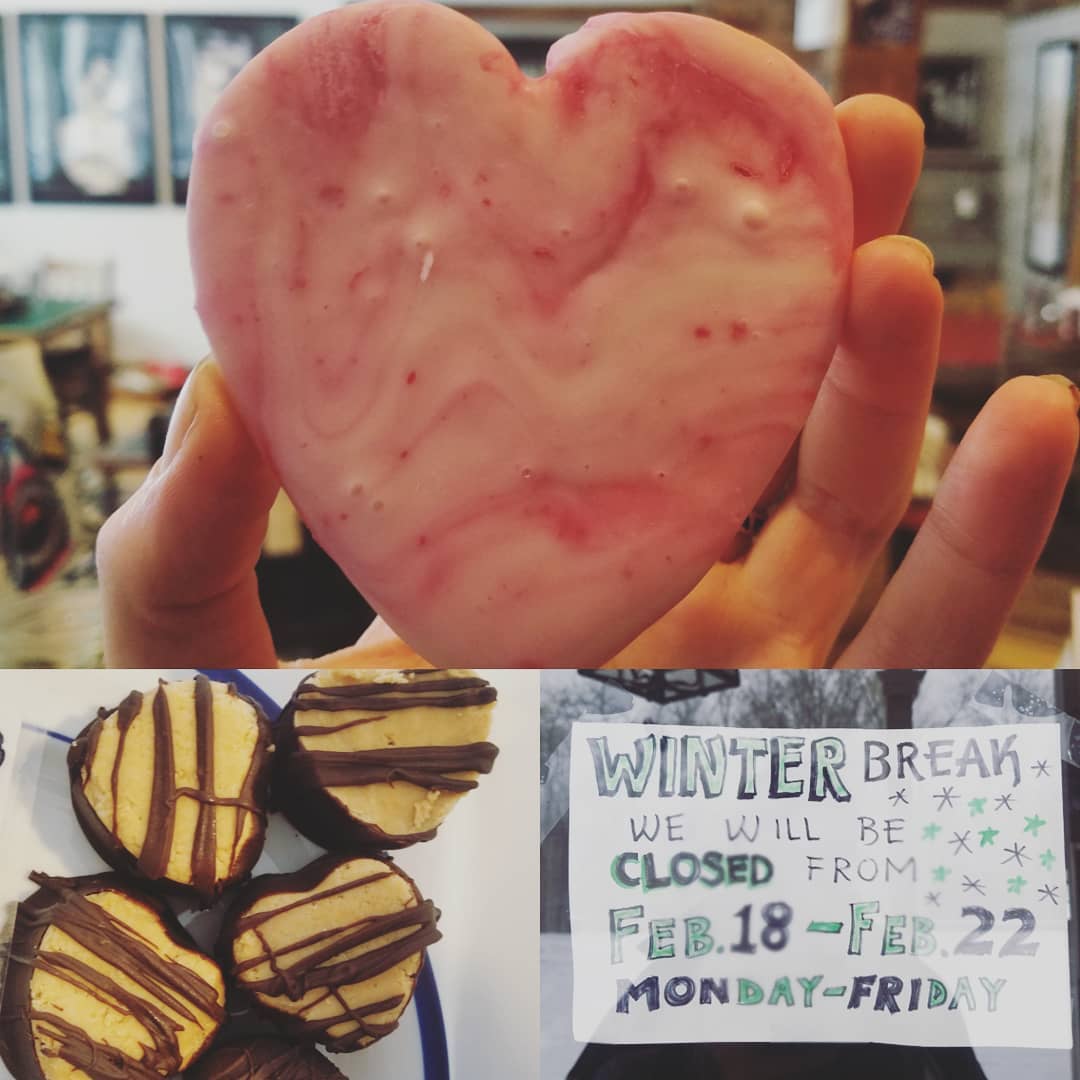 WINTER BREAK
WE WILL BE
CLOSED FROM
FEB. 18 - FEB. 22
MONDAY-FRIDAY